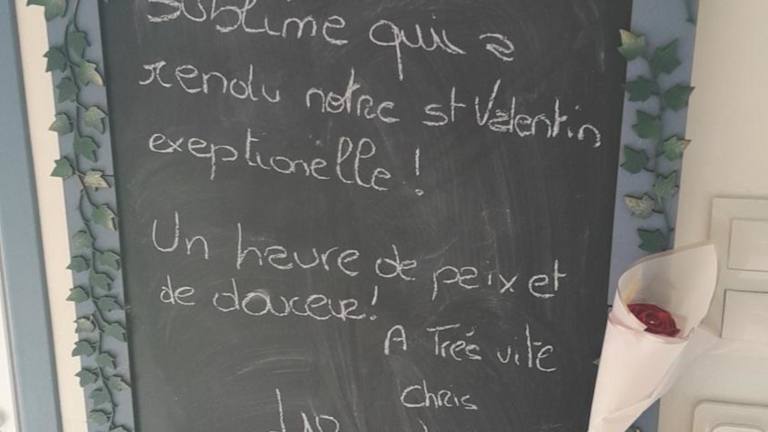 sublime qui a
rendu notre st Valentin
exeptionelle !
Un heure de paix et
de douceur !
A Trés vite
Chris